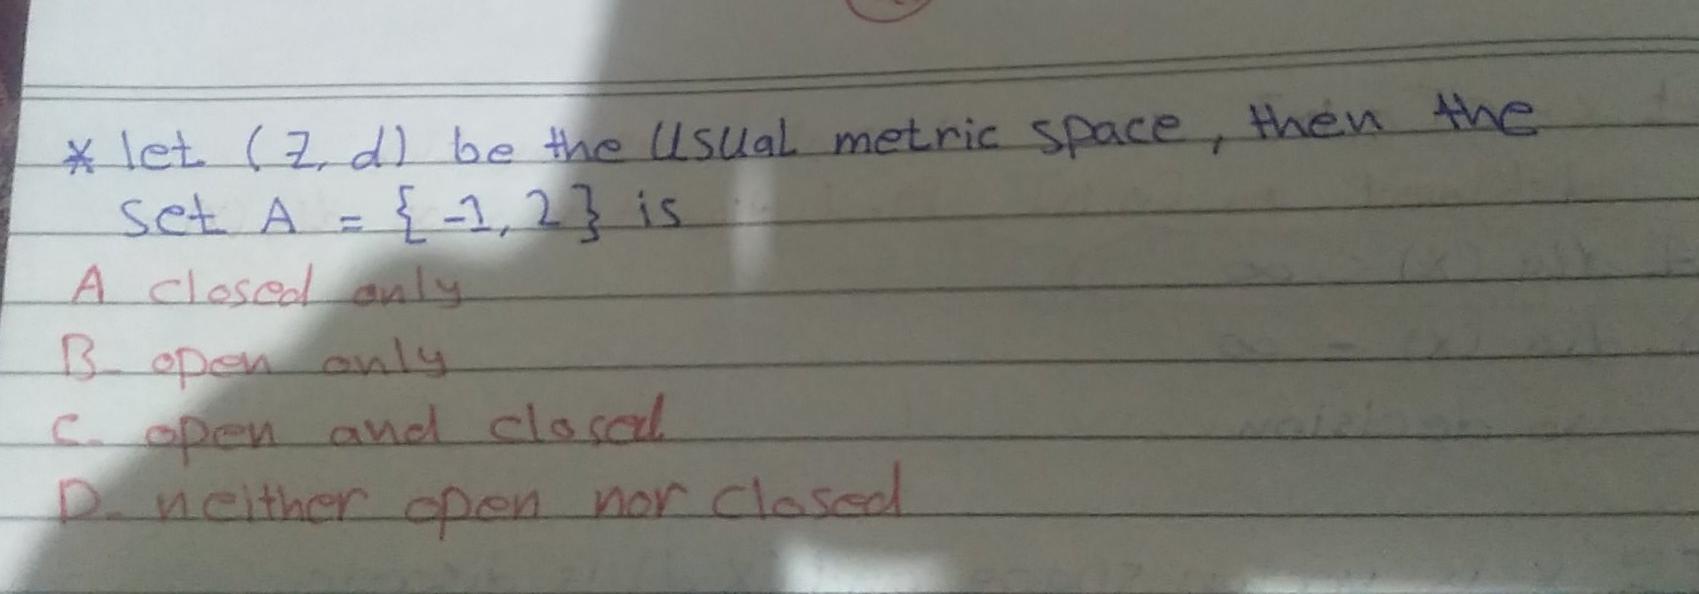 * let (Z, d) be the usual metric space, then the
set A = {-1, 2} is
A closed only
B- open only
C. open and closed
D- neither open nor closed